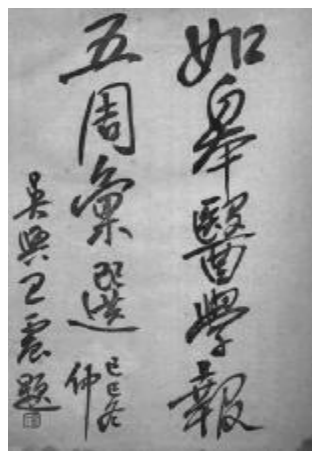 如皋醫學報
五周彙選
己巳冬
仲
吳興王震題